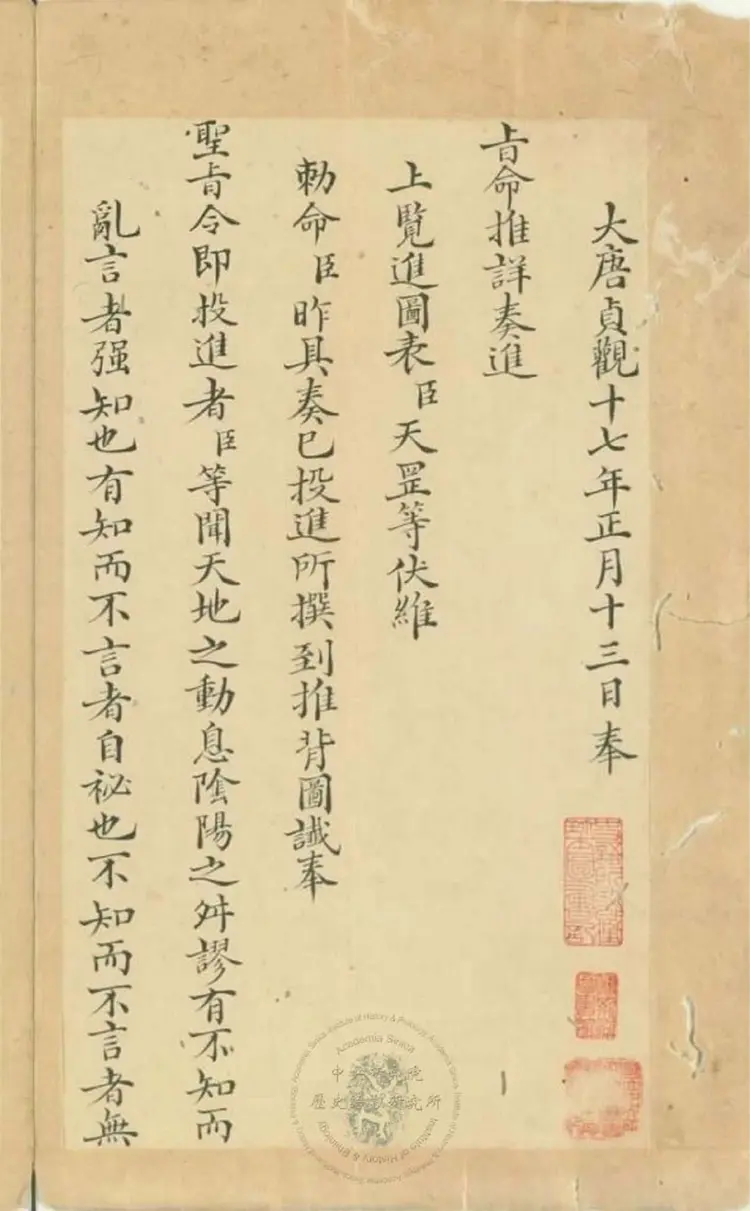 大唐貞觀十七年正月十三日奉
㫖命推詳奏進
上覽進圖表臣天罡等伏維
勅命臣昨具奏已投進所撰到推背圖讖奉
聖㫖令即投進者臣等聞天地之動息陰陽之舛謬有不知而
亂言者强知也有知而不言者自祕也不知而不言者無
Academia Sinica
中央研究院
歷史語言研究所
Institute of History & Philology